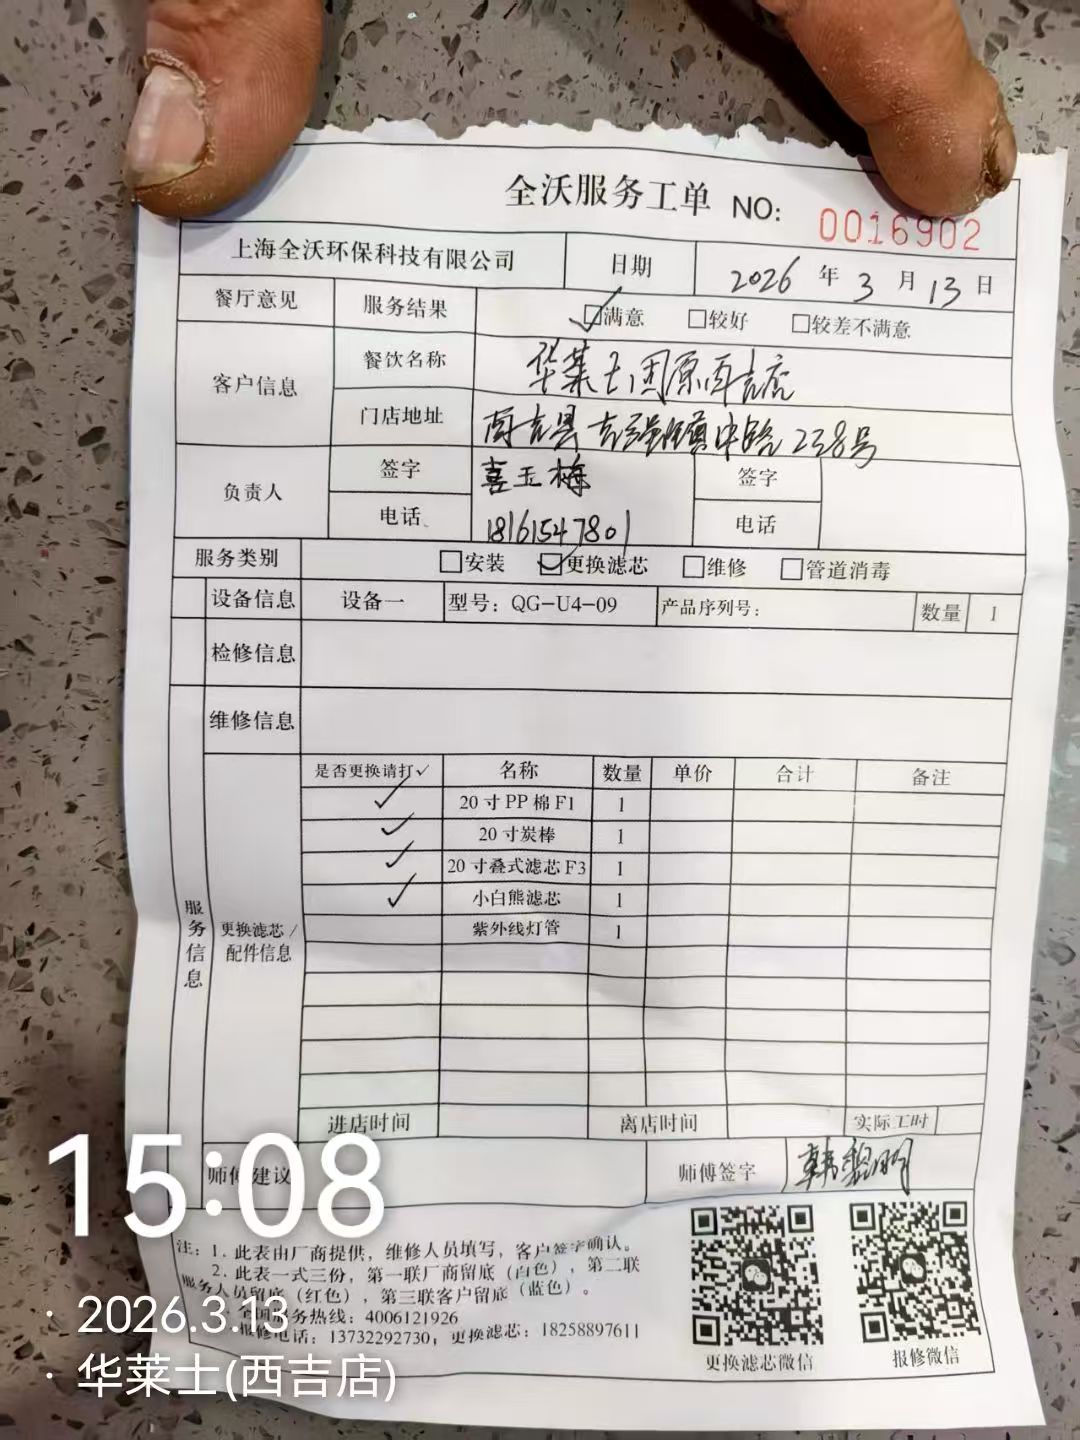 全沃服务工单 NO: 0016902
上海全沃环保科技有限公司 日期 2026 年 3 月 13 日
餐厅意见 服务结果 ☑满意 □较好 □较差不满意
客户信息 餐饮名称 华莱士固原西吉店
门店地址 西吉县吉强镇中路238号
负责人 签字 喜玉梅 签字
电话 18161547801 电话
服务类别 □安装 ☑更换滤芯 □维修 □管道消毒
设备信息 设备一 型号：QG-U4-09 产品序列号： 数量 1
检修信息
维修信息
服务信息
更换滤芯/配件信息
是否更换请打✓ 名称 数量 单价 合计 备注
✓ 20寸PP棉F1 1
✓ 20寸炭棒 1
✓ 20寸叠式滤芯F3 1
✓ 小白熊滤芯 1
紫外线灯管 1
进店时间 离店时间 实际工时
师傅建议 师傅签字 韩黎明
注：1. 此表由厂商提供，维修人员填写，客户签字确认。
2. 此表一式三份，第一联厂商留底（白色），第二联
服务人员留底（红色），第三联客户留底（蓝色）。
服务热线：4006121926
报修电话：13732292730；更换滤芯：18258897611
更换滤芯微信 报修微信
15:08
· 2026.3.13
· 华莱士(西吉店)